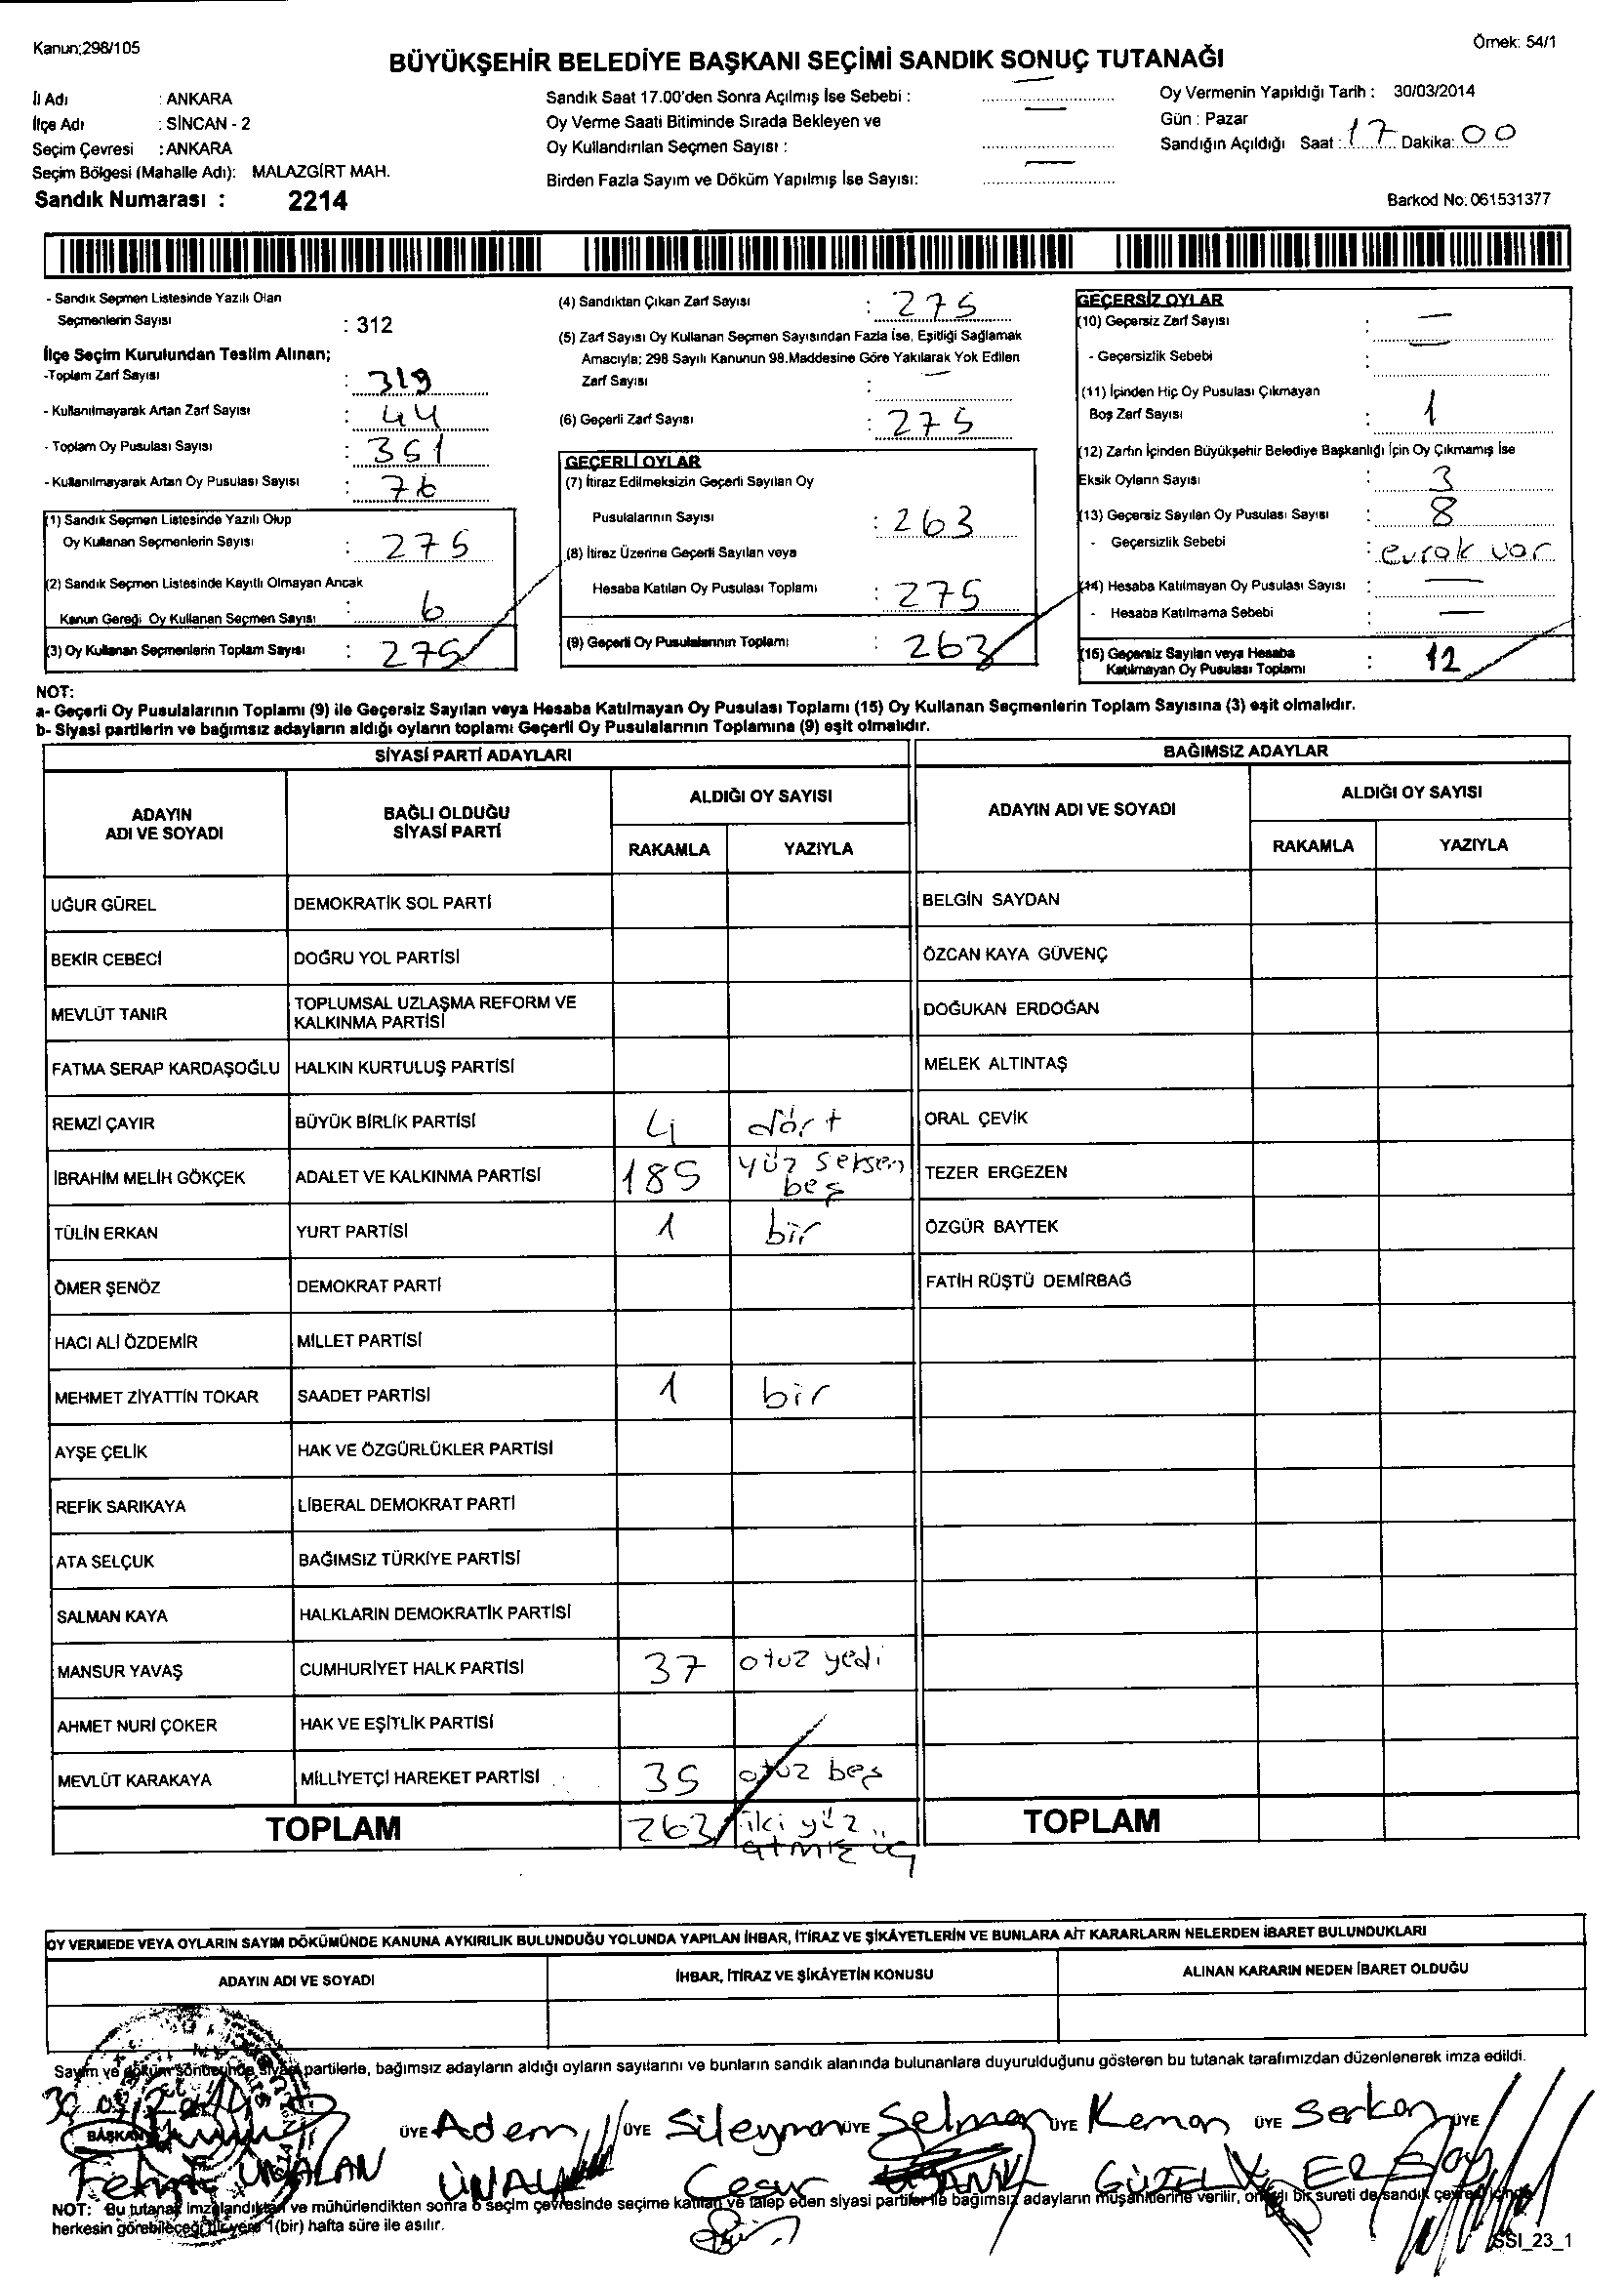 Kanun;298/105
Örnek: 54/1
BÜYÜKŞEHİR BELEDİYE BAŞKANI SEÇİMİ SANDIK SONUÇ TUTANAĞI
İl Adı : ANKARA
İlçe Adı : SİNCAN - 2
Seçim Çevresi : ANKARA
Seçim Bölgesi (Mahalle Adı): MALAZGİRT MAH.
Sandık Numarası : 2214
Sandık Saat 17.00'den Sonra Açılmış İse Sebebi : —
Oy Verme Saati Bitiminde Sırada Bekleyen ve
Oy Kullandırılan Seçmen Sayısı : —
Birden Fazla Sayım ve Döküm Yapılmış İse Sayısı: —
Oy Vermenin Yapıldığı Tarih : 30/03/2014
Gün : Pazar
Sandığın Açıldığı Saat : 17 Dakika: 00
Barkod No: 061531377
- Sandık Seçmen Listesinde Yazılı Olan
Seçmenlerin Sayısı : 312
İlçe Seçim Kurulundan Teslim Alınan;
-Toplam Zarf Sayısı : 319
- Kullanılmayarak Artan Zarf Sayısı : 44
- Toplam Oy Pusulası Sayısı : 351
- Kullanılmayarak Artan Oy Pusulası Sayısı : 76
(1) Sandık Seçmen Listesinde Yazılı Olup
Oy Kullanan Seçmenlerin Sayısı : 275
(2) Sandık Seçmen Listesinde Kayıtlı Olmayan Ancak
Kanun Gereği Oy Kullanan Seçmen Sayısı : 6
(3) Oy Kullanan Seçmenlerin Toplam Sayısı : 275
(4) Sandıktan Çıkan Zarf Sayısı : 275
(5) Zarf Sayısı Oy Kullanan Seçmen Sayısından Fazla İse, Eşitliği Sağlamak
Amacıyla; 298 Sayılı Kanunun 98.Maddesine Göre Yakılarak Yok Edilen
Zarf Sayısı : —
(6) Geçerli Zarf Sayısı : 275
GEÇERLİ OYLAR
(7) İtiraz Edilmeksizin Geçerli Sayılan Oy
Pusulalarının Sayısı : 263
(8) İtiraz Üzerine Geçerli Sayılan veya
Hesaba Katılan Oy Pusulası Toplamı : 275
(9) Geçerli Oy Pusulalarının Toplamı : 263
GEÇERSİZ OYLAR
(10) Geçersiz Zarf Sayısı : —
- Geçersizlik Sebebi : —
(11) İçinden Hiç Oy Pusulası Çıkmayan
Boş Zarf Sayısı : 1
(12) Zarfın İçinden Büyükşehir Belediye Başkanlığı İçin Oy Çıkmamış İse
Eksik Oyların Sayısı : 3
(13) Geçersiz Sayılan Oy Pusulası Sayısı : 8
- Geçersizlik Sebebi : evrak var
(14) Hesaba Katılmayan Oy Pusulası Sayısı : —
- Hesaba Katılmama Sebebi : —
(15) Geçersiz Sayılan veya Hesaba
Katılmayan Oy Pusulası Toplamı : 12
NOT:
a- Geçerli Oy Pusulalarının Toplamı (9) ile Geçersiz Sayılan veya Hesaba Katılmayan Oy Pusulası Toplamı (15) Oy Kullanan Seçmenlerin Toplam Sayısına (3) eşit olmalıdır.
b- Siyasi partilerin ve bağımsız adayların aldığı oyların toplamı Geçerli Oy Pusulalarının Toplamına (9) eşit olmalıdır.
SİYASİ PARTİ ADAYLARI
ADAYIN ADI VE SOYADI BAĞLI OLDUĞU SİYASİ PARTİ ALDIĞI OY SAYISI
RAKAMLA YAZIYLA
UĞUR GÜREL DEMOKRATİK SOL PARTİ
BEKİR CEBECİ DOĞRU YOL PARTİSİ
MEVLÜT TANIR TOPLUMSAL UZLAŞMA REFORM VE KALKINMA PARTİSİ
FATMA SERAP KARDAŞOĞLU HALKIN KURTULUŞ PARTİSİ
REMZİ ÇAYIR BÜYÜK BİRLİK PARTİSİ 4 dört
İBRAHİM MELİH GÖKÇEK ADALET VE KALKINMA PARTİSİ 185 yüz seksen beş
TÜLİN ERKAN YURT PARTİSİ 1 bir
ÖMER ŞENÖZ DEMOKRAT PARTİ
HACI ALİ ÖZDEMİR MİLLET PARTİSİ
MEHMET ZİYATTİN TOKAR SAADET PARTİSİ 1 bir
AYŞE ÇELİK HAK VE ÖZGÜRLÜKLER PARTİSİ
REFİK SARIKAYA LİBERAL DEMOKRAT PARTİ
ATA SELÇUK BAĞIMSIZ TÜRKİYE PARTİSİ
SALMAN KAYA HALKLARIN DEMOKRATİK PARTİSİ
MANSUR YAVAŞ CUMHURİYET HALK PARTİSİ 37 otuz yedi
AHMET NURİ ÇOKER HAK VE EŞİTLİK PARTİSİ
MEVLÜT KARAKAYA MİLLİYETÇİ HAREKET PARTİSİ 35 otuz beş
TOPLAM 263 iki yüz atmış üç
BAĞIMSIZ ADAYLAR
ADAYIN ADI VE SOYADI ALDIĞI OY SAYISI
RAKAMLA YAZIYLA
BELGİN SAYDAN
ÖZCAN KAYA GÜVENÇ
DOĞUKAN ERDOĞAN
MELEK ALTINTAŞ
ORAL ÇEVİK
TEZER ERGEZEN
ÖZGÜR BAYTEK
FATİH RÜŞTÜ DEMİRBAĞ
TOPLAM
OY VERMEDE VEYA OYLARIN SAYIM DÖKÜMÜNDE KANUNA AYKIRILIK BULUNDUĞU YOLUNDA YAPILAN İHBAR, İTİRAZ VE ŞİKÂYETLERİN VE BUNLARA AİT KARARLARIN NELERDEN İBARET BULUNDUKLARI
ADAYIN ADI VE SOYADI İHBAR, İTİRAZ VE ŞİKÂYETİN KONUSU ALINAN KARARIN NEDEN İBARET OLDUĞU
Sayım ve döküm sonucunda siyasi partilerle, bağımsız adayların aldığı oyların sayılarını ve bunların sandık alanında bulunanlara duyurulduğunu gösteren bu tutanak tarafımızdan düzenlenerek imza edildi.
BAŞKAN ÜYE Adem ÜYE Süleyman ÜYE Selman ÜYE Kenan ÜYE Serkan ÜYE
ÜNALAN ÜNAL Cesur GÜZEL ERSOY
NOT: Bu tutanak imzalandıktan ve mühürlendikten sonra o seçim çevresinde seçime katılan ve talep eden siyasi partiler ile bağımsız adayların müşahitlerine verilir, onaylı bir sureti de sandık çevresi içinde
herkesin görebileceği bir yere 1(bir) hafta süre ile asılır.
SSI_23_1